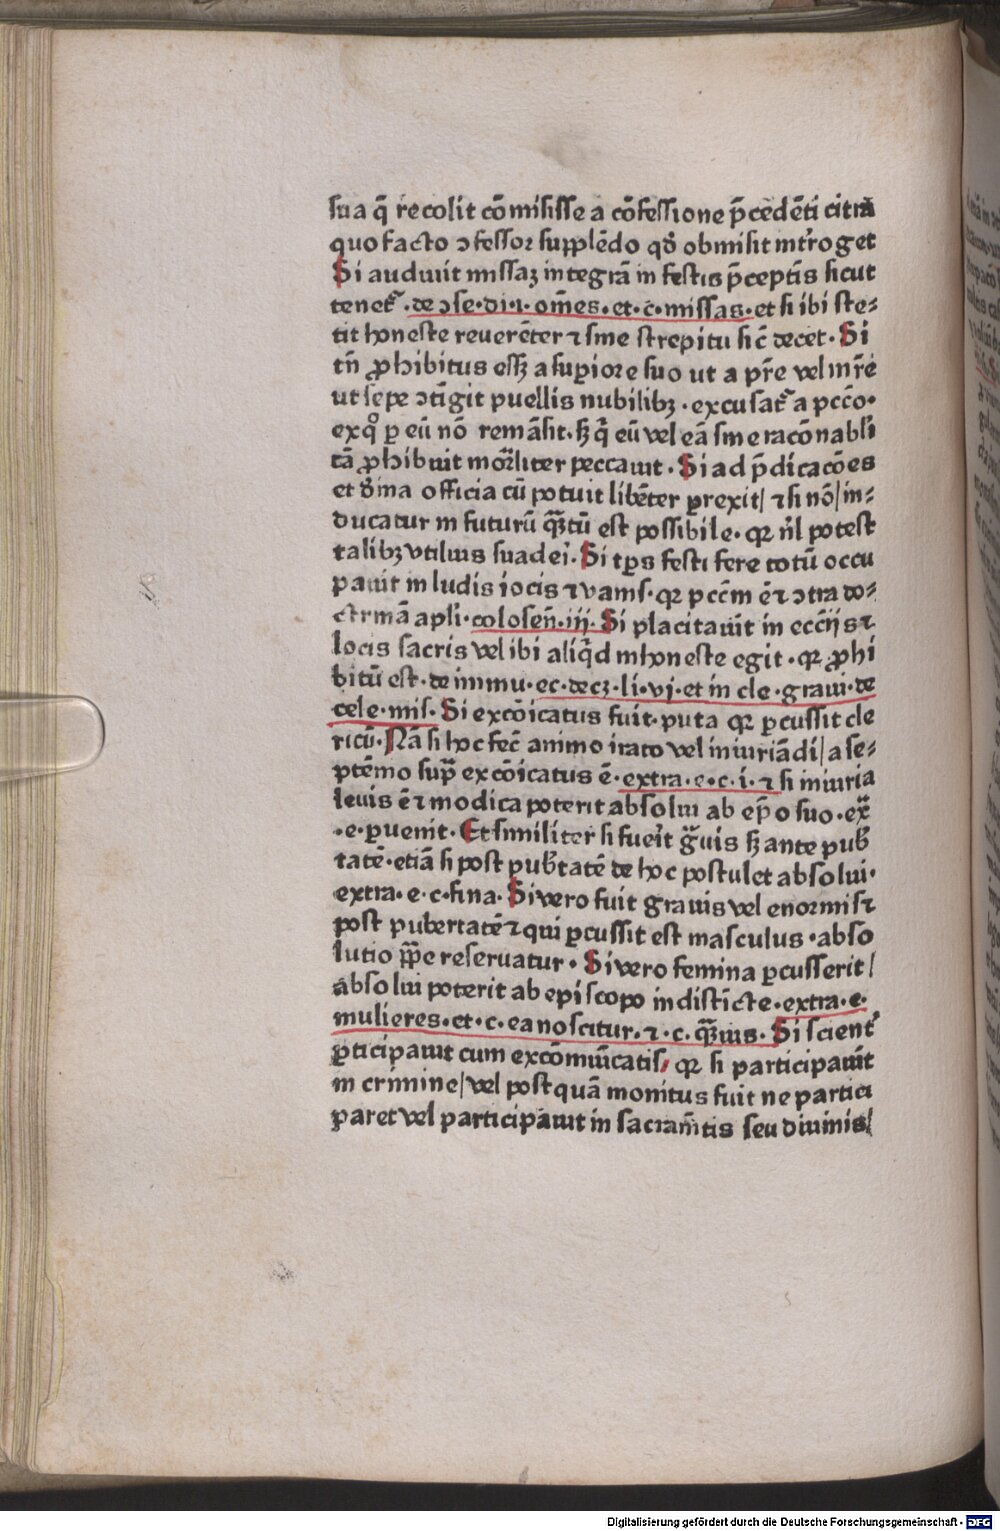 sua q̄ recolit cōmisisse a cōfessione p̄cedēti citra
quo facto ɔfessor supplēdo qđ obmisit int̄roget
Si audiuit missaȝ integrā in festis p̄ceptis sicut
tenet᷑. de ɔse. di. i. om̄es. et. c. missas. et si ibi ste-
tit honeste reuerēter ⁊ sine strepitu sic̄ decet. Si
tn̄ ꝓhibitus esȝ a supiore suo ut a pr̄e vel mr̄e
ut sepe ɔtīgit puellis nubilibȝ. excusat᷑ a pcc̄o.
exqͦ ꝑ eū nō remāsit. sȝ q̄ eū vel eā sine racōnabl̓i
cā ꝓhibuit mor̄liter peccauit. Si ad p̄dicacōes
et đina officia cū potuit libēter ꝑrexit/ ⁊ si nō/ in-
ducatur in futurū q̄ȝtū est possibile. qꝛ nl̄ potest
talibȝ vtilius suaderi. Si tp̄s festi fere totū occu
pauit in ludis iocis ⁊ vanis. qꝛ pccm̄ ē ⁊ ɔtra do-
ctrinā apli. colosen̄. iij. Si placitauit in ecc̄ijs ⁊
locis sacris vel ibi aliq̄d inhoneste egit. qꝛ ꝓhi
bitū est. de immu. ec. decȝ. li. vj. et in cle. graui. de
cele. mis. Si excōicatus fuit. puta qꝛ ꝑcussit cle
ricū. Nā si hoc fec̄ animo irato vel iniuriādi/ a se-
ptēno sup̄ excōicatus ē. extra. e. c. i. ⁊ si iniuria
leuis ē ⁊ modica poterit absolui ab ep̄o suo. ex̄
. e. ꝑuenit. Et similiter si fuerit g̃uis sȝ ante pub̄
tatē. etiā si post pub̄tatē de hoc postulet absolui.
extra. e. c. fina. Si vero fuit grauis vel enormis ⁊
post pubertatē ⁊ qui ꝑcussit est masculus. abso
lutio pp̄e reseruatur. Si vero femina ꝑcusserit/
absolui poterit ab episcopo indisticte. extra. e.
mulieres. et. c. ea noscitur. ⁊. c. q̄ȝuis. Si scient᷑
ꝑticipauit cum excōmūicatis, qꝛ si participauit
in crimine/ vel postquā monitus fuit ne partici
paret vel participauit in sacram̄tis seu diuinis/
Digitalisierung gefördert durch die Deutsche Forschungsgemeinschaft - DFG